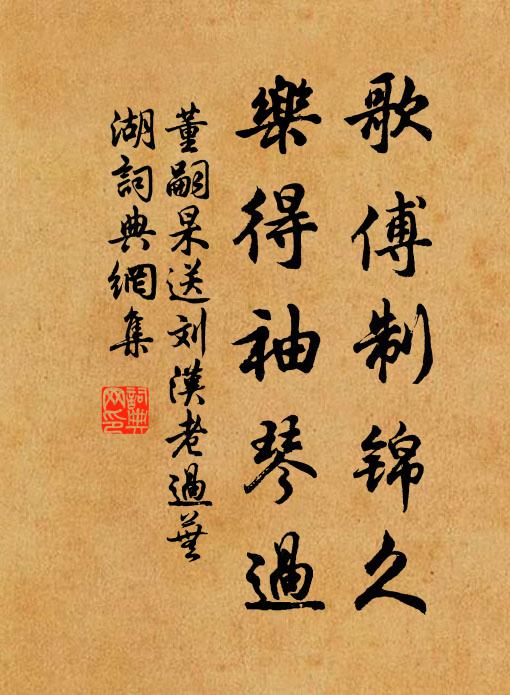 歌傅制锦久
樂得袖琴過
董嗣杲送刘漢老過蕪
湖詞典網集
詞典網印